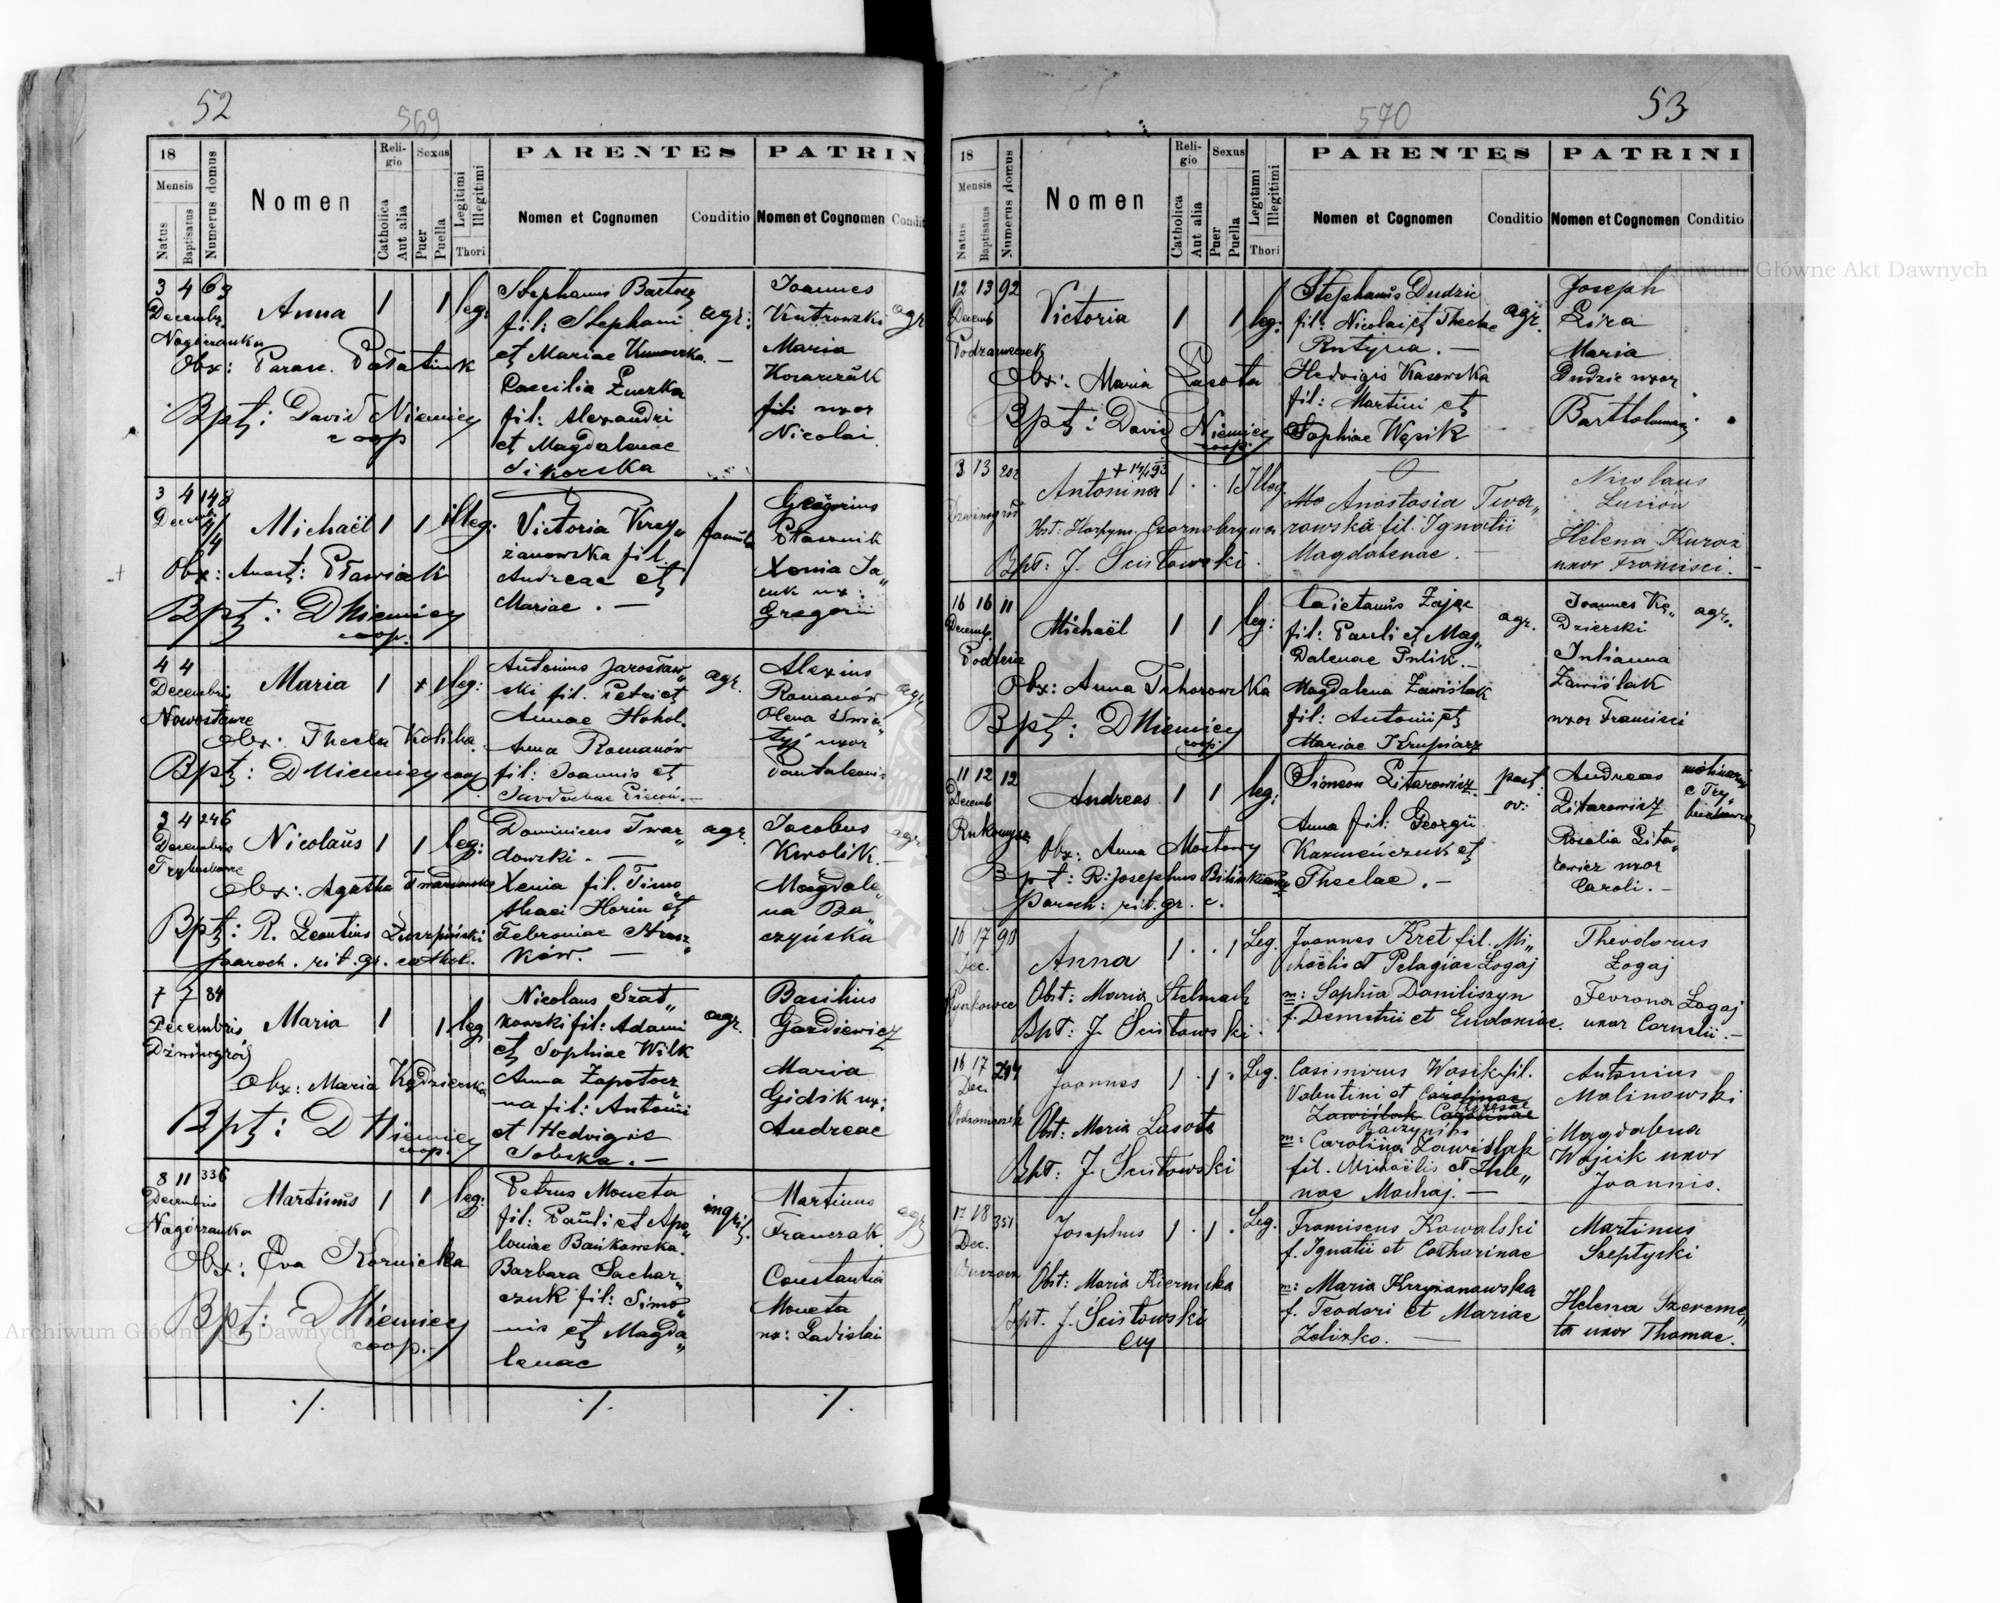 52
569
18
Mensis
Natus
Baptisatus
Numerus domus
Nomen
Religio
Catholica
Aut alia
Sexus
Puer
Puella
Legitimi
Illegitimi
Thori
PARENTES
Nomen et Cognomen
Conditio
PATRIN
Nomen et Cognomen
Condit
3 4 63
Decembr.
Nagórzanka
Anna 1 1 leg:
Obx: Parasc. Pałatiuk
Bpt: David Niemiec
coop
Stephanus Bartosz
fil: Stephani
et Mariae Kunowska. —
Caecilia Żuczka
fil: Alexandri
et Magdalenae
Sikorska
agr:
Joannes
Maria
uxor
Nicolai
agr
3 4 148
Michaël 1 1 illeg:
Obx: Anast: Pławiak
Bpt: D Niemiec
coop:
Victoria Krzy„
żanowska fil.
Andreae et
Mariae. —
famula
Gregorius
Ptasznik
Xenia Ja„
cuk ux:
Gregorii
4 4
Decembris
Nowostawce
Maria 1 1 leg:
Obx: Thecla
Bpt: D Niemiec coop
Antonius Jarosław„
ski fil. Petri et
Annae Hohol.
Anna Romanów
fil: Joannis et
agr.
Alexius
Romanów
Olena
uxor
Pantaleonis
agr
3 4 246
Decembris
Trybuchowce
Nicolaus 1 1 leg:
Obx: Agatha Twardowska
Bpt: R. Leontius
paroch. rit. gr. cathol.
Dominicus Twar„
dowski. —
Xenia fil. Timo„
thaei Horin et
Febroniae Hresz„
ków. —
agr.
Jacobus
Kwolik. —
Magdale„
na Ba„
czyńska
agr.
7 7 84
Decembris
Dźwinogród
Maria 1 1 leg
Obx: Maria Kędzierska
Bpt: D Niemiec
coop.
Nicolaus Szad„
kowski fil: Adami
et Sophiae Wilk
Anna Zapotocz„
na fil: Antonii
et Hedvigis
Sobska. —
agr.
Basilius
Gordiewicz
Maria
Gidsik ux:
Andreae
8 11 336
Decembris
Nagórzanka
Martinus 1 1 leg:
Obx: Eva Kornicka
Bpt: D Niemiec
coop.
Petrus Moneta
fil: Pauli et Apo„
loniae Bańkowska.
Barbara Sachar„
czuk fil: Simo„
nis et Magda„
lenae
inquil.
Martinus
Franczak
Constantia
Moneta
ux: Ladislai
agr
·/. ·/. ·/.
53
570
18
Mensis
Natus
Baptisatus
Numerus domus
Nomen
Religio
Catholica
Aut alia
Sexus
Puer
Puella
Legitimi
Illegitimi
Thori
PARENTES
Nomen et Cognomen
Conditio
PATRINI
Nomen et Cognomen
Conditio
12 13 92
Decemb
Podzameczek
Victoria 1 1 leg:
Obx: Maria Lasota
Bpt: David Niemiec
coop:
Stephanus Dudzic
fil: Nicolai et Theclae
Rutyna. —
Hedvigis Kasowska
fil: Martini et
Sophiae Wąsik
agr.
Joseph
Lira
Maria
Dudzic uxor
Bartholomaei.
13 202
Dzwinogród
Antonina 1 · · 1 Illeg.
Bpt: J. Scisłowski.
Anastasia Twa„
rowska fil. Ignatii
Magdalenae. —
Nicolaus
Helena Kuroz
uxor Francisci.
16 16 11
Decemb.
Podlesie
Michaël 1 1 leg:
Obx: Anna Tchorowska
Bpt: D Niemiec
coop:
Caietanus Zając
fil: Pauli et Mag„
dalenae Pulik. —
Magdalena Zawiślak
fil: Antonii et
Mariae Krupiarz
agr.
Joannes Kę„
dzierski
Julianna
Zawiślak
uxor Francisci
agr.
11 12 12
Decemb
Rukomysz
Andreas 1 1 leg:
Obx: Anna Mostowy
Bpt: R: Josephus
Paroch: rit. gr. c.
Simeon Litarowicz.
Anna fil: Georgii
Kazmieńczuk et
Theclae. —
past.
ov:
Andreas
Litarowicz
Rosalia Lita„
rowicz uxor
Caroli. —
molinarius
e Try„
buchowce
16 17 90
Dec.
Anna 1 · · 1 Leg.
Obst: Maria Stelmach
Bpt: J. Scisłowski.
Joannes Kret fil. Mi„
chaëlis et Pelagiae Łogaj
m: Sophia Daniliszyn
f. Demetrii et Eudoxiae.
Theodorus
Łogaj
Fevrona Łogaj
uxor Cornelii. —
16 17
Dec.
Podzameczek
Joannes 1 · 1 · Leg.
Obst: Maria Lasota
Bpt: J. Scisłowski
Casimirus Wasik fil.
Valentini et Carolinae
Zawiślak Carolinae
Theresae
m: Carolina Zawiślak
fil. Michaëlis et Hele„
nae Machaj. —
Antonius
Malinowski
Magdalena
Wojcik uxor
Joannis.
17 18 351
Dec.
Josephus 1 · 1 · Leg.
Obst: Maria Kiernicka
Bpt. J. Scisłowski
Franciscus Kowalski
f. Ignatii et Catharinae
m: Maria Krzyżanowska
f. Teodori et Mariae
Zelizko. —
Martinus
Szeptycki
Helena Szereme„
ta uxor Thomae.
Archiwum Główne Akt Dawnych
Archiwum Główne Akt Dawnych